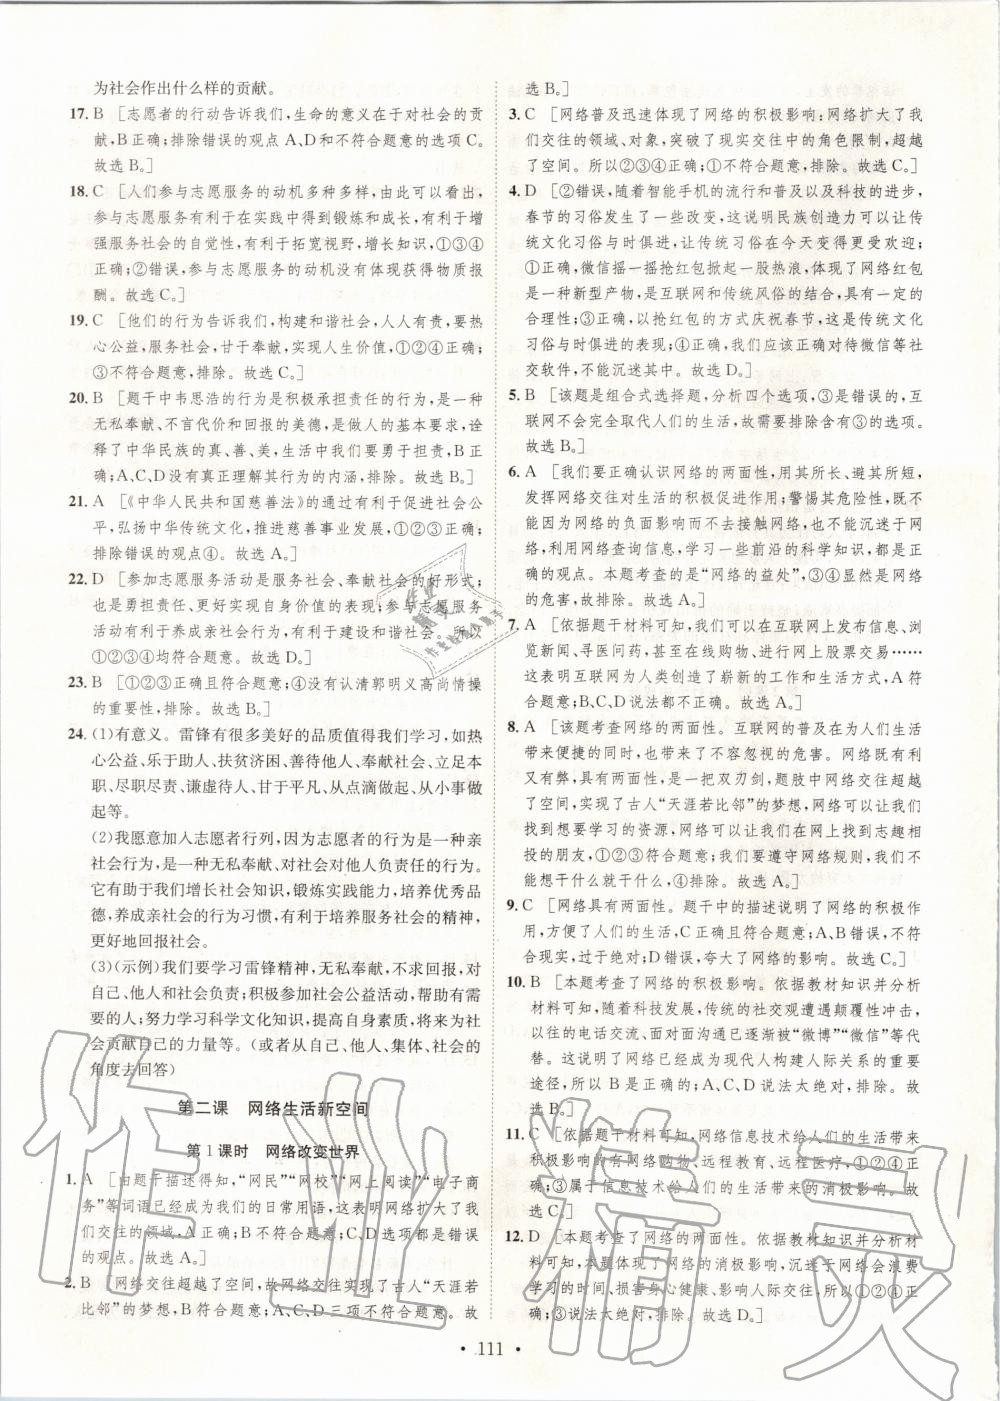 为社会作出什么样的贡献。
17. B [志愿者的行动告诉我们,生命的意义在于对社会的贡
献,B正确;排除错误的观点A、D和不符合题意的选项C。
故选B。]
18. C [人们参与志愿服务的动机多种多样,由此可以看出,
参与志愿服务有利于在实践中得到锻炼和成长,有利于增
强服务社会的自觉性,有利于拓宽视野,增长知识,①③④
正确;②错误,参与志愿服务的动机没有体现获得物质报
酬。故选C。]
19. C [他们的行为告诉我们,构建和谐社会,人人有责,要热
心公益,服务社会,甘于奉献,实现人生价值,①②④正确;
③不符合题意,排除。故选C。]
20. B [题干中韦思浩的行为是积极承担责任的行为,是一种
无私奉献、不言代价和回报的美德,是做人的基本要求,诠
释了中华民族的真、善、美,生活中我们要勇于担责,B正
确;A、C、D没有真正理解其行为的内涵,排除。故选B。]
21. A [《中华人民共和国慈善法》的通过有利于促进社会公
平,弘扬中华传统文化,推进慈善事业发展,①②③正确;
排除错误的观点④。故选A。]
22. D [参加志愿服务活动是服务社会、奉献社会的好形式;
也是勇担责任、更好地实现自身价值的表现;参与志愿服务
活动有利于养成亲社会行为,有利于建设和谐社会。所以
①②③④均符合题意。故选D。]
23. B [①②③正确且符合题意;④没有认清郭明义高尚情操
的重要性,排除。故选B。]
24. (1)有意义。雷锋有很多美好的品质值得我们学习,如热
心公益、乐于助人、扶贫济困、善待他人、奉献社会、立足本
职、尽职尽责、谦虚待人、甘于平凡、从点滴做起、从小事做
起等。
(2)我愿意加入志愿者行列,因为志愿者的行为是一种亲
社会行为,是一种无私奉献、对社会对他人负责任的行为。
它有助于我们增长社会知识,锻炼实践能力,培养优秀品
德,养成亲社会的行为习惯,有利于培养服务社会的精神,
更好地回报社会。
(3)(示例)我们要学习雷锋精神,无私奉献,不求回报,对
自己、他人和社会负责;积极参加社会公益活动,帮助有需要
的人;努力学习科学文化知识,提高自身素质,将来为社
会贡献自己的力量等。(或者从自己、他人、集体、社会的
角度去回答)
第二课 网络生活新空间
第1课时 网络改变世界
1. A [由题干描述得知,“网民”“网校”“网上阅读”“电子商
务”等词语已经成为我们的日常用语,这表明网络扩大了我
们交往的领域,A正确;B不符合题意;C、D选项都是错误
的观点。故选A。]
2. B [网络交往超越了空间,故网络交往实现了古人“天涯若
比邻”的梦想,B符合题意;A、C、D三项不符合题意。故
选B。]
3. C [网络普及迅速体现了网络的积极影响;网络扩大了我
们交往的领域、对象,突破了现实交往中的角色限制,超越
了空间。所以②③④正确;①不符合题意,排除。故选C。]
4. D [②错误,随着智能手机的流行和普及以及科技的进步,
春节的习俗发生了一些改变,这说明民族创造力可以让传
统文化习俗与时俱进,让传统习俗在今天变得更受欢迎;
①正确,微信摇一摇抢红包掀起一股热浪,体现了网络红包
是一种新型产物,是互联网和传统风俗的结合,具有一定的
合理性;③正确,以抢红包的方式庆祝春节,这是传统文化
习俗与时俱进的表现;④正确,我们应该正确对待微信等社
交软件,不能沉迷其中。故选D。]
5. B [该题是组合式选择题,分析四个选项,③是错误的,互
联网不会完全取代人们的生活,故需要排除含有③的选项。
故选B。]
6. A [我们要正确认识网络的两面性,用其所长、避其所短,
发挥网络交往对生活的积极促进作用;警惕其危险性,既不
能因为网络的负面影响而不去接触网络,也不能沉迷于网
络,利用网络查询信息,学习一些前沿的科学知识,都是正
确的观点。本题考查的是“网络的益处”,③④显然是网络
的危害,故排除。故选A。]
7. A [依据题干材料可知,我们在互联网上发布信息、浏
览新闻、寻医问药,甚至在线购物、进行网上股票交易……
这表明互联网为人类创造了崭新的工作和生活方式,A符
合题意;B、C、D说法都不正确。故选A。]
8. A [该题考查网络的两面性。互联网的普及在为人们生活
带来便捷的同时,也带来了不容忽视的危害。网络既有利
又有弊,具有两面性,是一把双刃剑,题肢中网络交往超越
了空间,实现了古人“天涯若比邻”的梦想,网络可以让我们
找到想要学习的资源,网络可以让我们在网上找到志趣相
投的朋友,①②③符合题意;我们要遵守网络规则,我们不
能想干什么就干什么,④排除。故选A。]
9. C [网络具有两面性。题干中的描述说明了网络的积极作
用,方便了人们的生活,C正确且符合题意;A、B不符合题
意,过于绝对;D错误,夸大了网络的影响。故选C。]
10. B [本题考查了网络的积极影响。依据教材知识并分析
材料可知,随着科技发展,传统的社交观遭遇颠覆性冲击,
以往的电话交流、面对面沟通已逐渐被“微博”“微信”等代
替。这说明了网络已经成为现代人构建人际关系的重要
途径,所以B是正确的选项;A、C、D说法太绝对,排除。故
选B。]
11. C [依据题干材料可知,网络信息技术给人们的生活带来
积极影响的有网络购物、远程教育、远程医疗,①②④符合
题意;③属于信息技术给人们的生活带来的消极影响。故
选C。]
12. B [本题考查了网络的两面性。依据教材知识并分析材
料可知,本题体现了网络的消极影响,沉迷网络会浪费
学习的时间、损害身心健康、影响人际交往,所以①②④正
确;③说法太绝对,排除。故选B。]
• 111 •
作业精灵